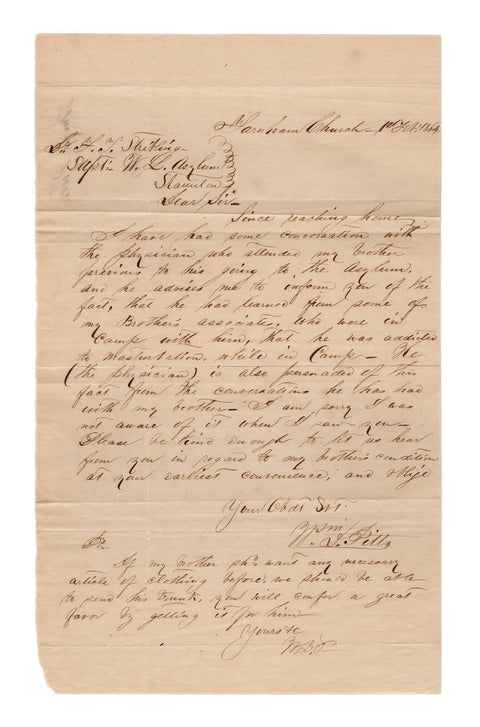 Farnham Church - 1st Feb. 1864
Dr. F. T. Stribling -
Supt. W. L. Asylum
Staunton
Dear Sir -
Since reaching home
I have had some conversation with
the physician who attended my brother
previous to his going to the Asylum,
and he advises me to inform you of the
fact, that he had learned from some of
my Brother's associates, who were in
Camp with him, that he was addicted
to masturbation, while in Camp - He
(the physician) is also persuaded of this
fact from the conversations he has had
with my brother - I am sorry I was
not aware of it when I saw you -
Please be kind enough to let us hear
from you in regard to my brother's condition
at your earliest convenience, and oblige
Your Obdt Svt.
W. D. Pitts
Ps.
If my brother shd. want any necessary
article of clothing before we should be able
to send his trunk, you will confer a great
favor by getting it for him
Yours &c
W.D.P.